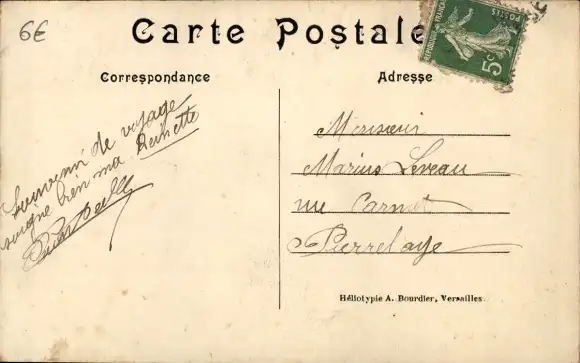 6€
Carte Postale
RÉPUBLIQUE FRANÇAISE
POSTES
5c
Correspondance
Adresse
Souvenir de voyage
soigne bien ma
Monsieur
Marius Leveau
rue Carnot
Pierrelaye
Héliotypie A. Bourdier, Versailles.